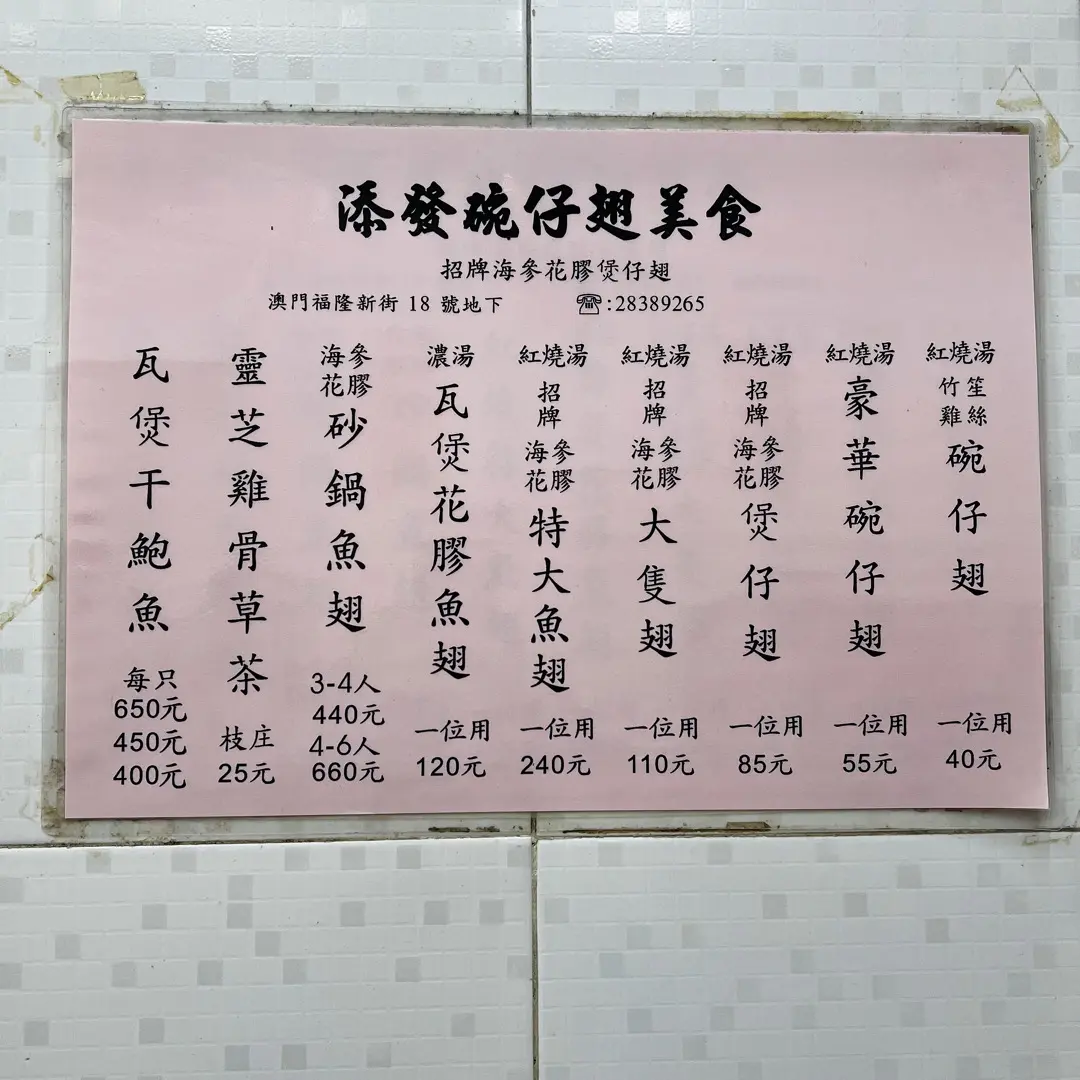 添發碗仔翅美食
招牌海參花膠煲仔翅
澳門福隆新街 18 號地下 ☎:28389265
紅燒湯 竹笙雞絲 碗仔翅 一位用 40元
紅燒湯 豪華碗仔翅 一位用 55元
紅燒湯 招牌 海參花膠 煲仔翅 一位用 85元
紅燒湯 招牌 海參花膠 大隻翅 一位用 110元
紅燒湯 招牌 海參花膠 特大魚翅 一位用 240元
濃湯 瓦煲花膠魚翅 一位用 120元
海參花膠 砂鍋魚翅 3-4人 440元 4-6人 660元
靈芝雞骨草茶 枝庄 25元
瓦煲干鮑魚 每只 650元 450元 400元